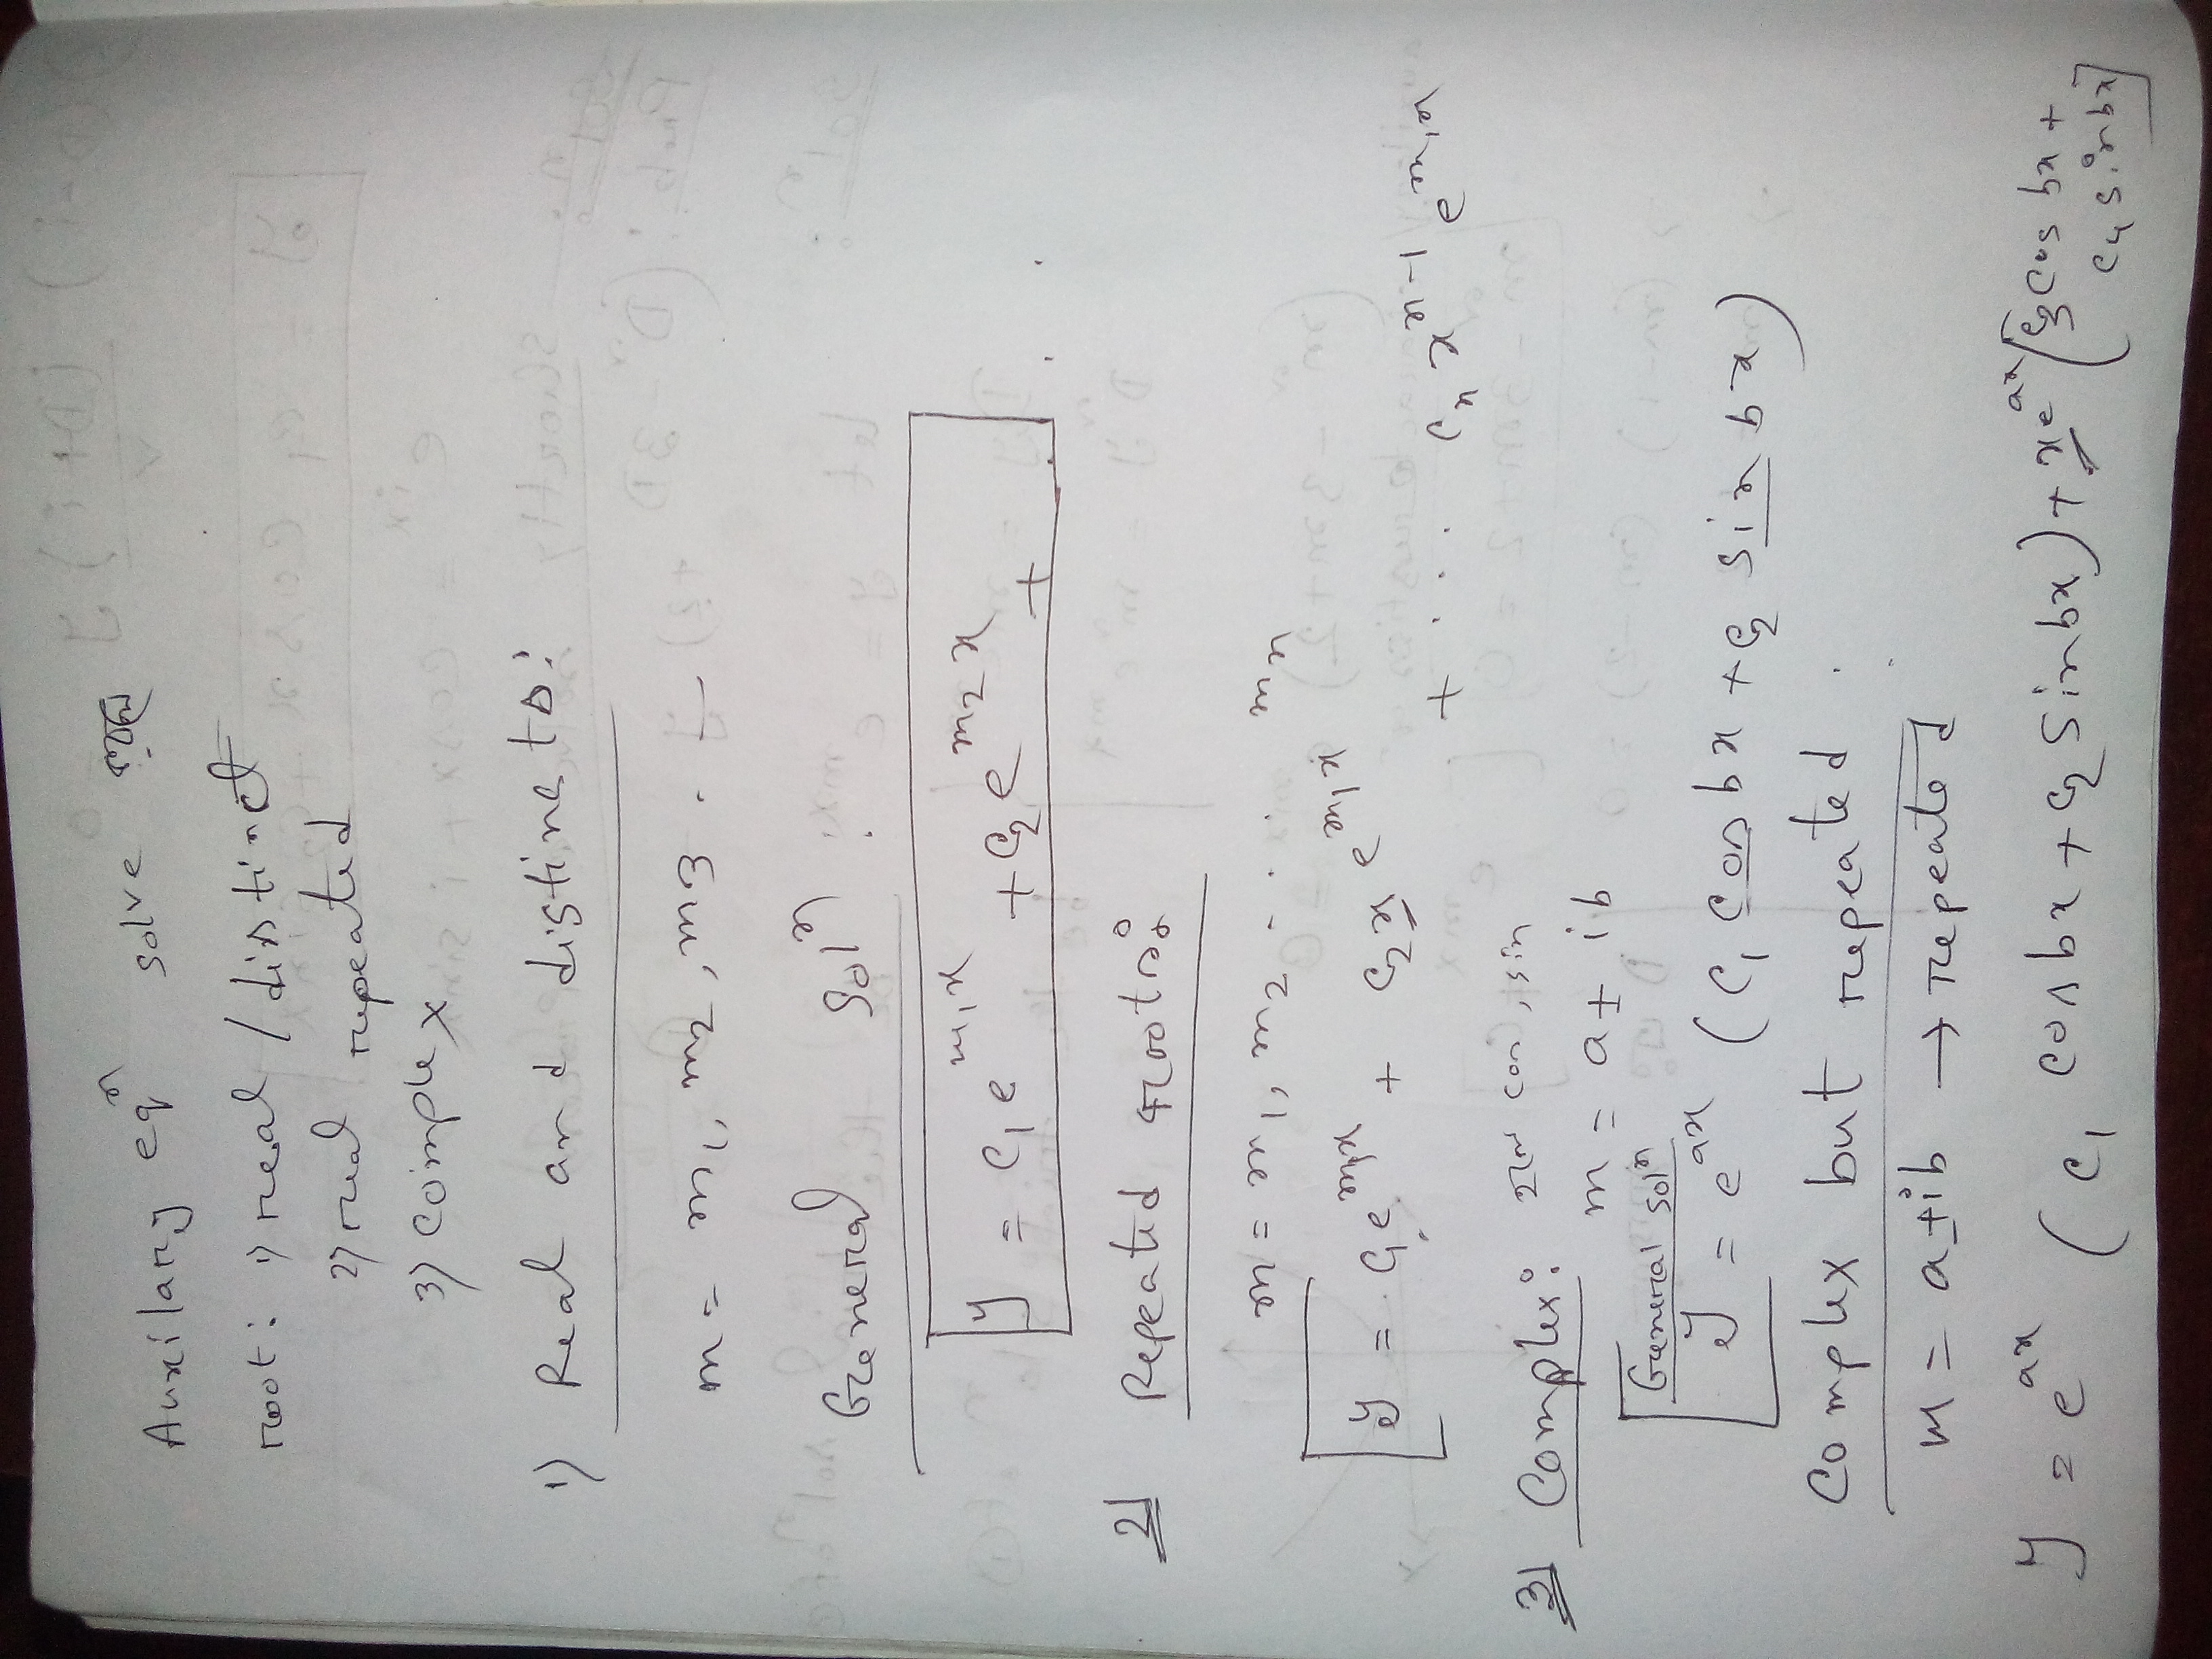 Auxilary eqⁿ solve
root: 1) real / distinct
2) real repeated
3) complex
1) Real and distincts:
m = m₁, m₂, m₃ . . —
General solⁿ :
y = c₁e^{m₁x} + c₂e^{m₂x} + . .
2) Repeated roots:
m = m₁, m₂ - . . mₙ
y = c₁e^{m₁x} + c₂x e^{m₁x} + . . . . cₙ x^{n-1} e^{m₁x}
3) Complex: cos, sin
m = a ± ib
General solⁿ
y = e^{ax} (c₁ cos bx + c₂ sin bx)
Complex but repeated .
m = a ± ib → repeated
y = e^{ax} (c₁ cos bx + c₂ sin bx) + xe^{ax} [c₃ cos bx +
c₄ sin bx]